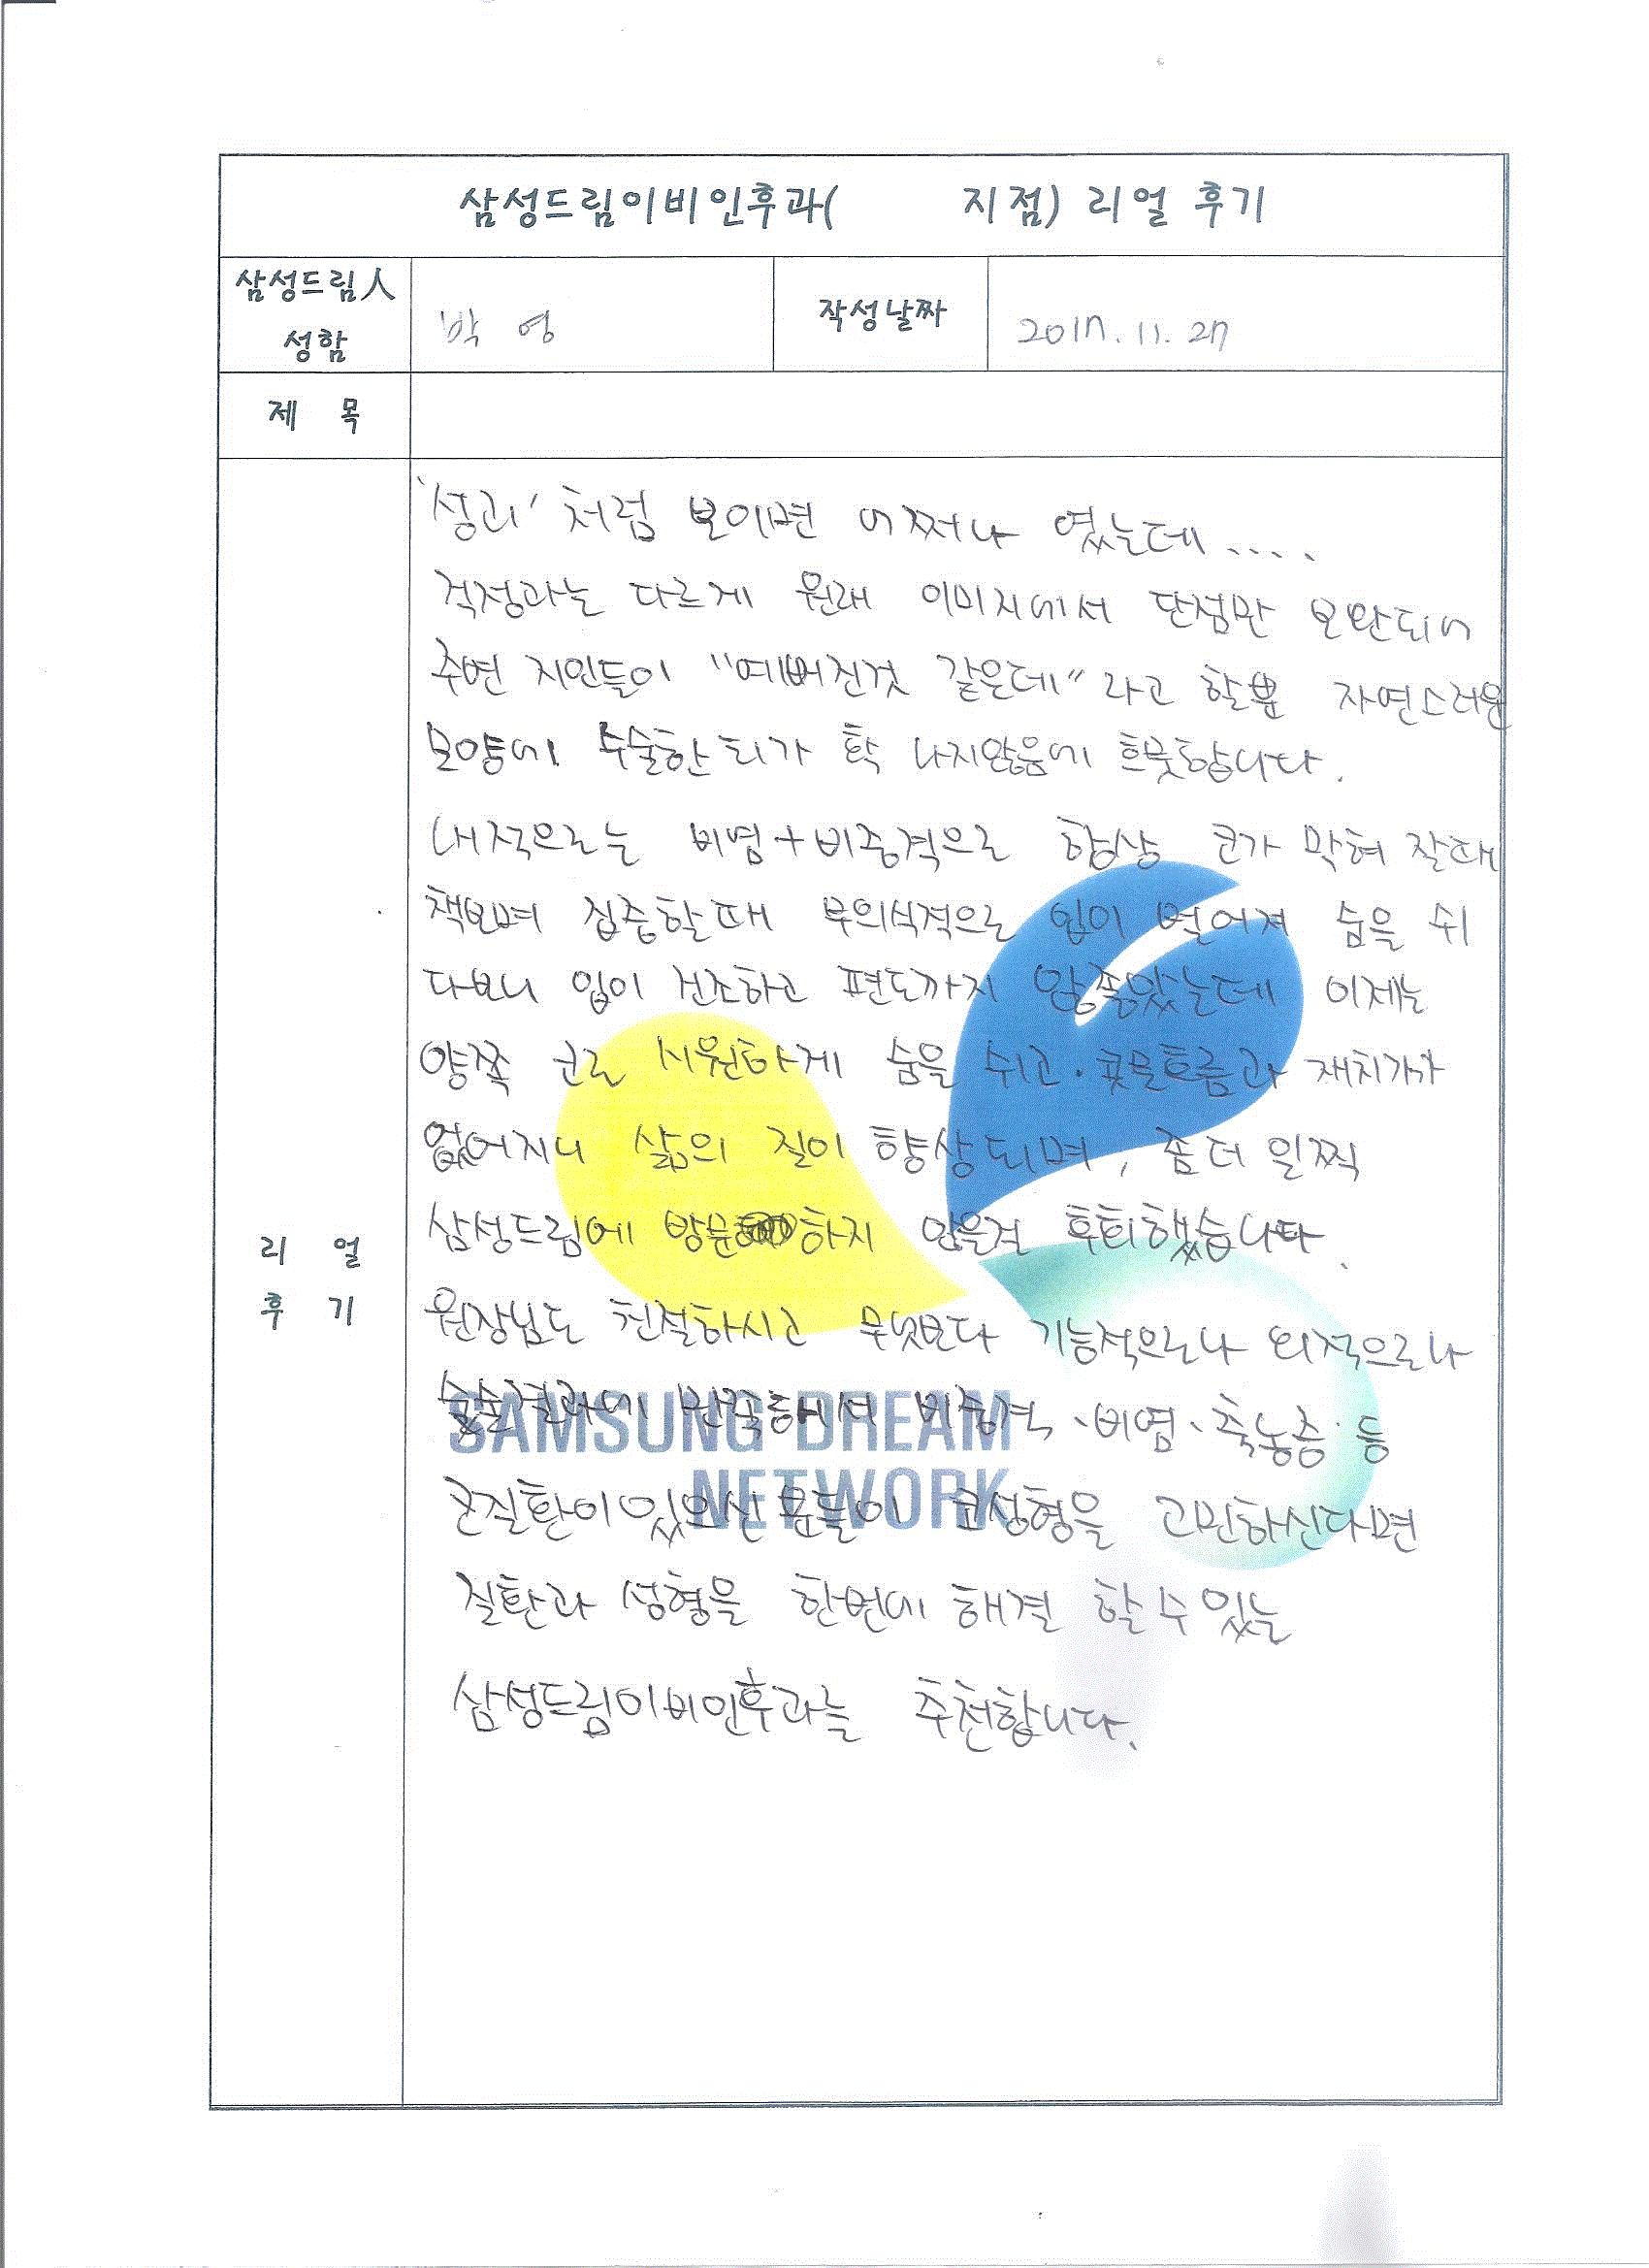 삼성드림이비인후과(      지점) 리얼 후기
삼성드림人 성함
박 영
작성날짜
2017. 11. 27
제 목
리 얼 후 기
'성괴' 처럼 보이면 어쩌나 였는데....
걱정과는 다르게 원래 이미지에서 단점만 보완되어
주변 지인들이 "예뻐진것 같은데" 라고 할뿐 자연스러운
모양에 수술한 티가 확 나지않음에 흐뭇합니다.
내적으로는 비염+비중격으로 항상 코가 막혀 잘때
책보며 집중할때 무의식적으로 입이 벌어져 숨을 쉬
다보니 입이 건조하고 편도까지 안좋았는데 이제는
양쪽 코로 시원하게 숨을 쉬고. 콧물흐름과 재치기가
없어지니 삶의 질이 향상되며, 좀더 일찍
삼성드림에 방문하지 않을걸 후회했습니다.
원장님도 친절하시고 무엇보다 기능적으로나 외적으로나
수술결과에 만족해서 비중격、비염、축농증 등
코질환이있으신 분들이 코성형을 고민하신다면
질환과 성형을 한번에 해결 할수있는
삼성드림이비인후과를 추천합니다.
SAMSUNG DREAM
NETWORK